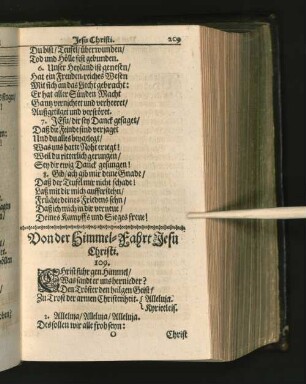 Jesu Christi. 209
Du bist / Teufel / überwunden /
Tod und Hölle sind gebunden.
6. Unser Heyland ist genesen /
Hat ein Freuden-reiches Wesen
Mit sich an das Liecht gebracht:
Er hat aller Sünden Macht
Gantz vernichtet und verheeret /
Außgetilget und verstöret.
7. JEsu / dir sey Danck gesaget /
Daß die Feinde sind verjaget
Und du alles beygelegt /
Was uns hat Noht erregt!
Weil du ritterlich gerungen /
Sey dir ewig Danck gesungen!
8. Gib / ach gib mir deine Gnade /
Daß der Teufel mir nicht schade:
Laß mit dir mich aufferstehn /
Früchte deines Friedens sehn /
Daß ich mich in dir verneue /
Deines Kampffs und Sieges freue!
Von der Himmel-Fahrt Jesu
Christi.
109.
CHrist fuhr gen Himmel /
Was sandt er uns hernieder?
Den Tröster den heilgen Geist /
Zu Trost der armen Christenheit. Alleluja.
Kyrieeleis.
2. Alleluja / Alleluja / Alleluja.
Des sollen wir alle froh seyn:
O Christ